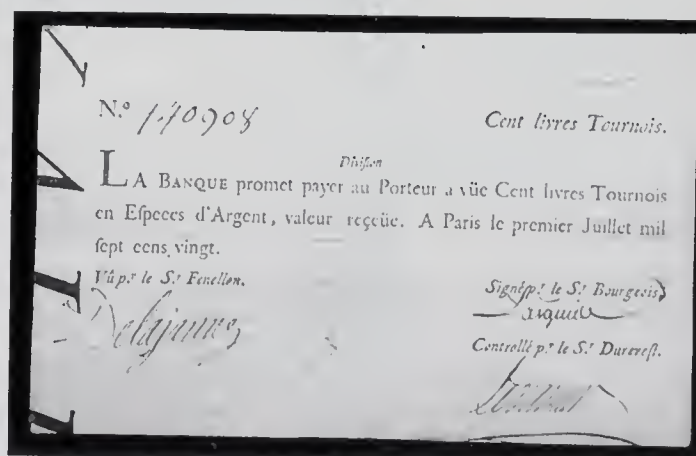 N.º 140908 Cent livres Tournois.
Division
LA BANQUE promet payer au Porteur a vûe Cent livres Tournois
en Eſpeces d'Argent, valeur reçeüe. A Paris le premier Juillet mil
ſept cens vingt.
Vû p.r le S.r Fenellon.
Signé p.r le S.r Bourgeois
Controllé p.r le S.r Dureveſt.